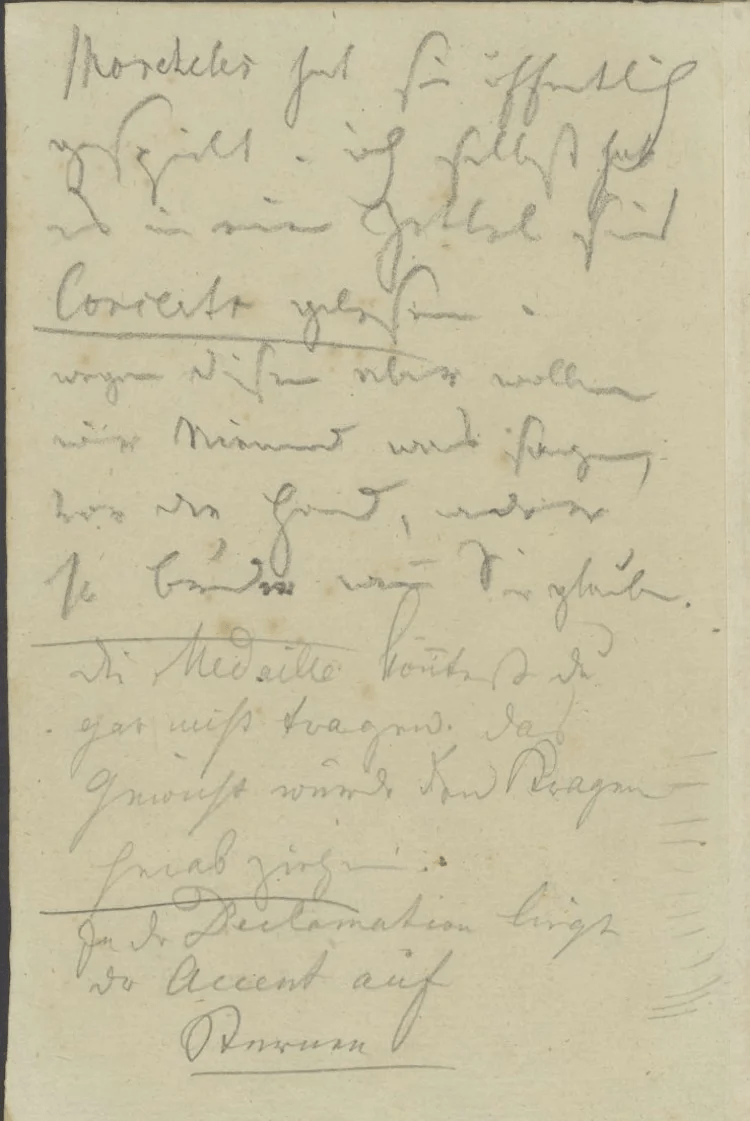 Moscheles hat sie öffentlich
gespielt. ich selbst habe
es in einem Zettel seines
Concerts gelesen.
wegen diesem aber wollen
wir Niemand was sagen,
vor der Hand,
beide wenn Sie glauben.
Die Medaille könntest du
gar nicht tragen. das
Gewicht würde den Kragen
herab ziehen.
In der Declamation liegt
der Accent auf
Sternen